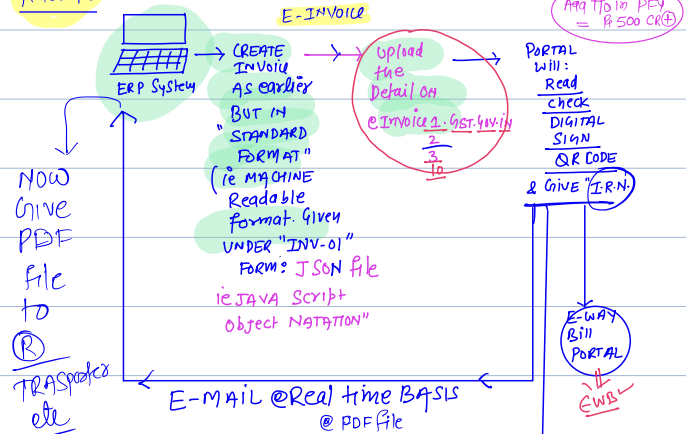 E-INVOICE
Agg T/o in PFY
= ₹ 500 CR+
ERP System
CREATE
INVOICE
AS earlier
BUT IN
"STANDARD
FORMAT"
(ie MACHINE
Readable
format. Given
UNDER "INV-01"
FORM: JSON file
ie JAVA Script
Object NATATION"
Upload
the
Detail on
@Invoice1.GST.GOV.in
2
3
10
PORTAL
Will:
Read
check
DIGITAL
SIGN
QR CODE
& GIVE "I.R.N."
E-WAY
Bill
PORTAL
EWB
E-MAIL @Real time BASIS
@ PDF file
NOW
Give
PDF
file
to
R
TRASporter
etc